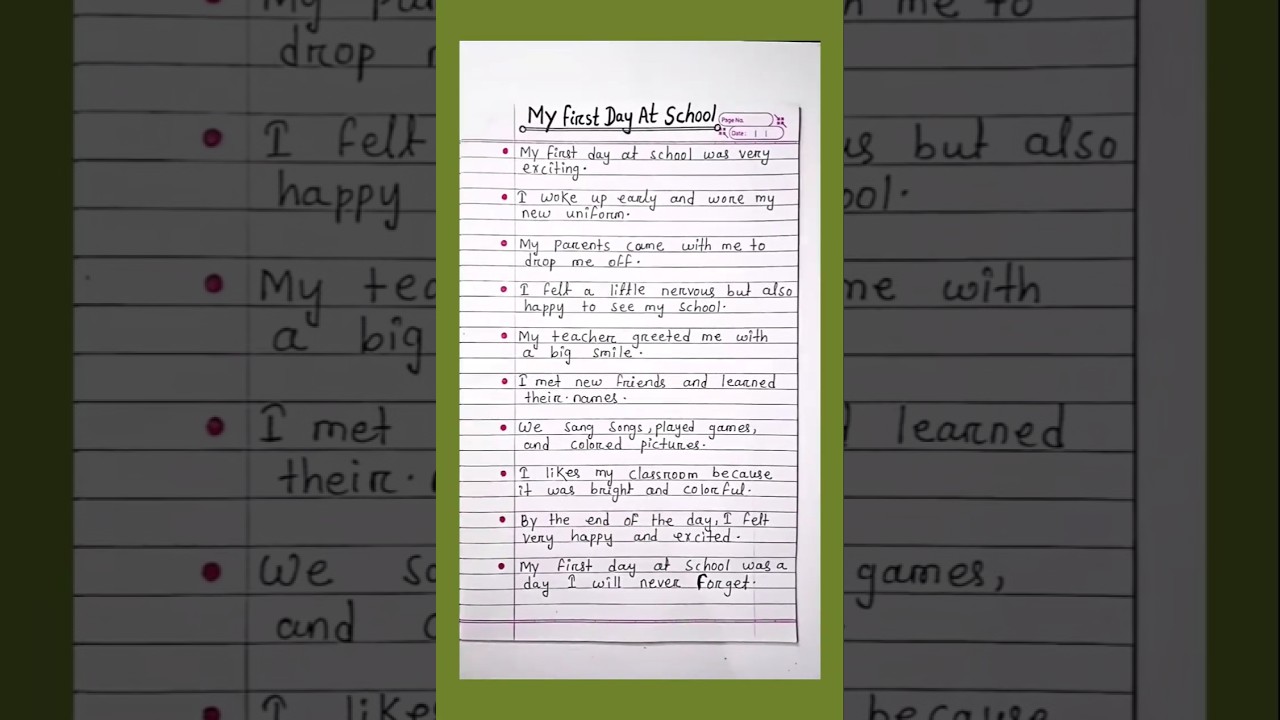 My First Day At School
Page No.
Date:
My first day at school was very
exciting.
I woke up early and wore my
new uniform.
My parents came with me to
drop me off.
I felt a little nervous but also
happy to see my school.
My teacher greeted me with
a big smile.
I met new friends and learned
their names.
We sang songs, played games,
and colored pictures.
I likes my classroom because
it was bright and colorful.
By the end of the day, I felt
very happy and excited.
My first day at school was a
day I will never forget.